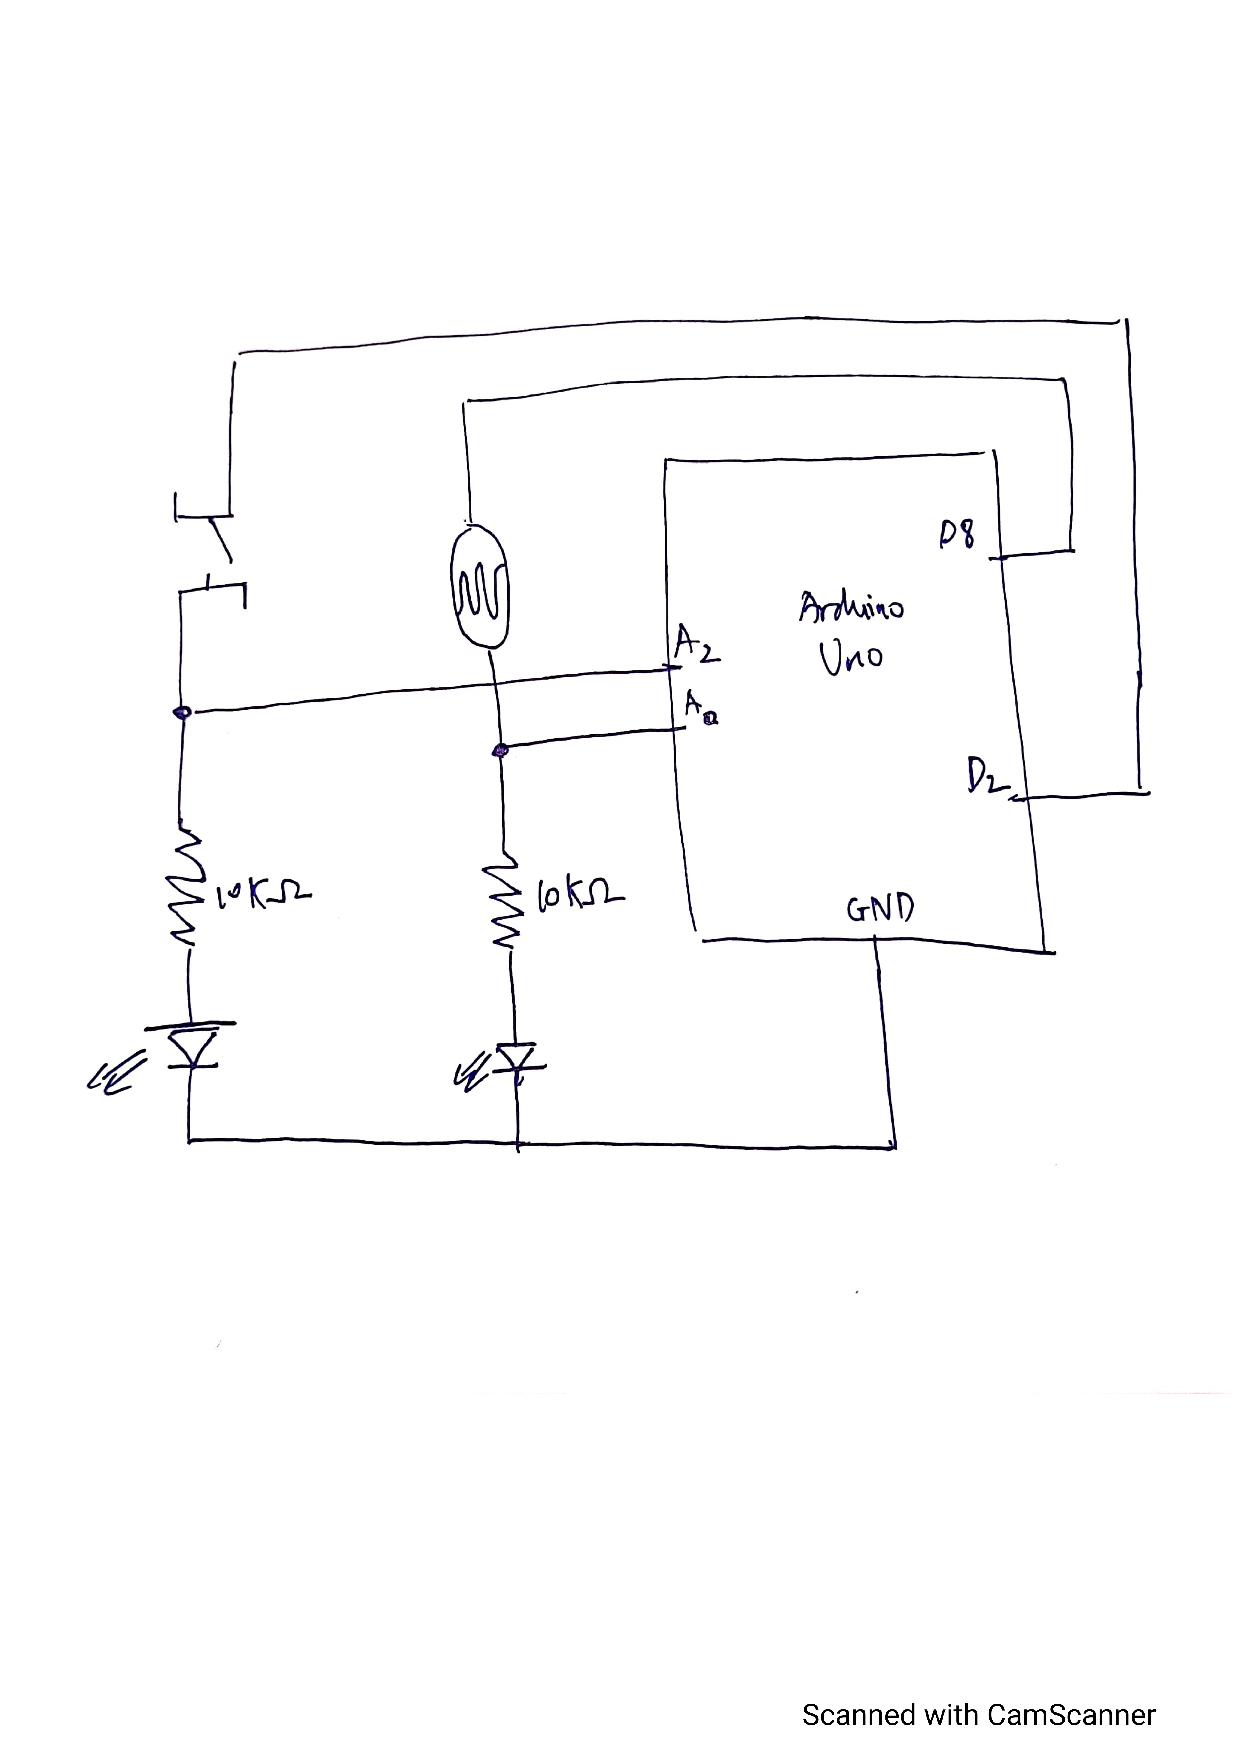 D8
Arduino
Uno
A2
A0
D2
10KΩ
10KΩ
GND
Scanned with CamScanner